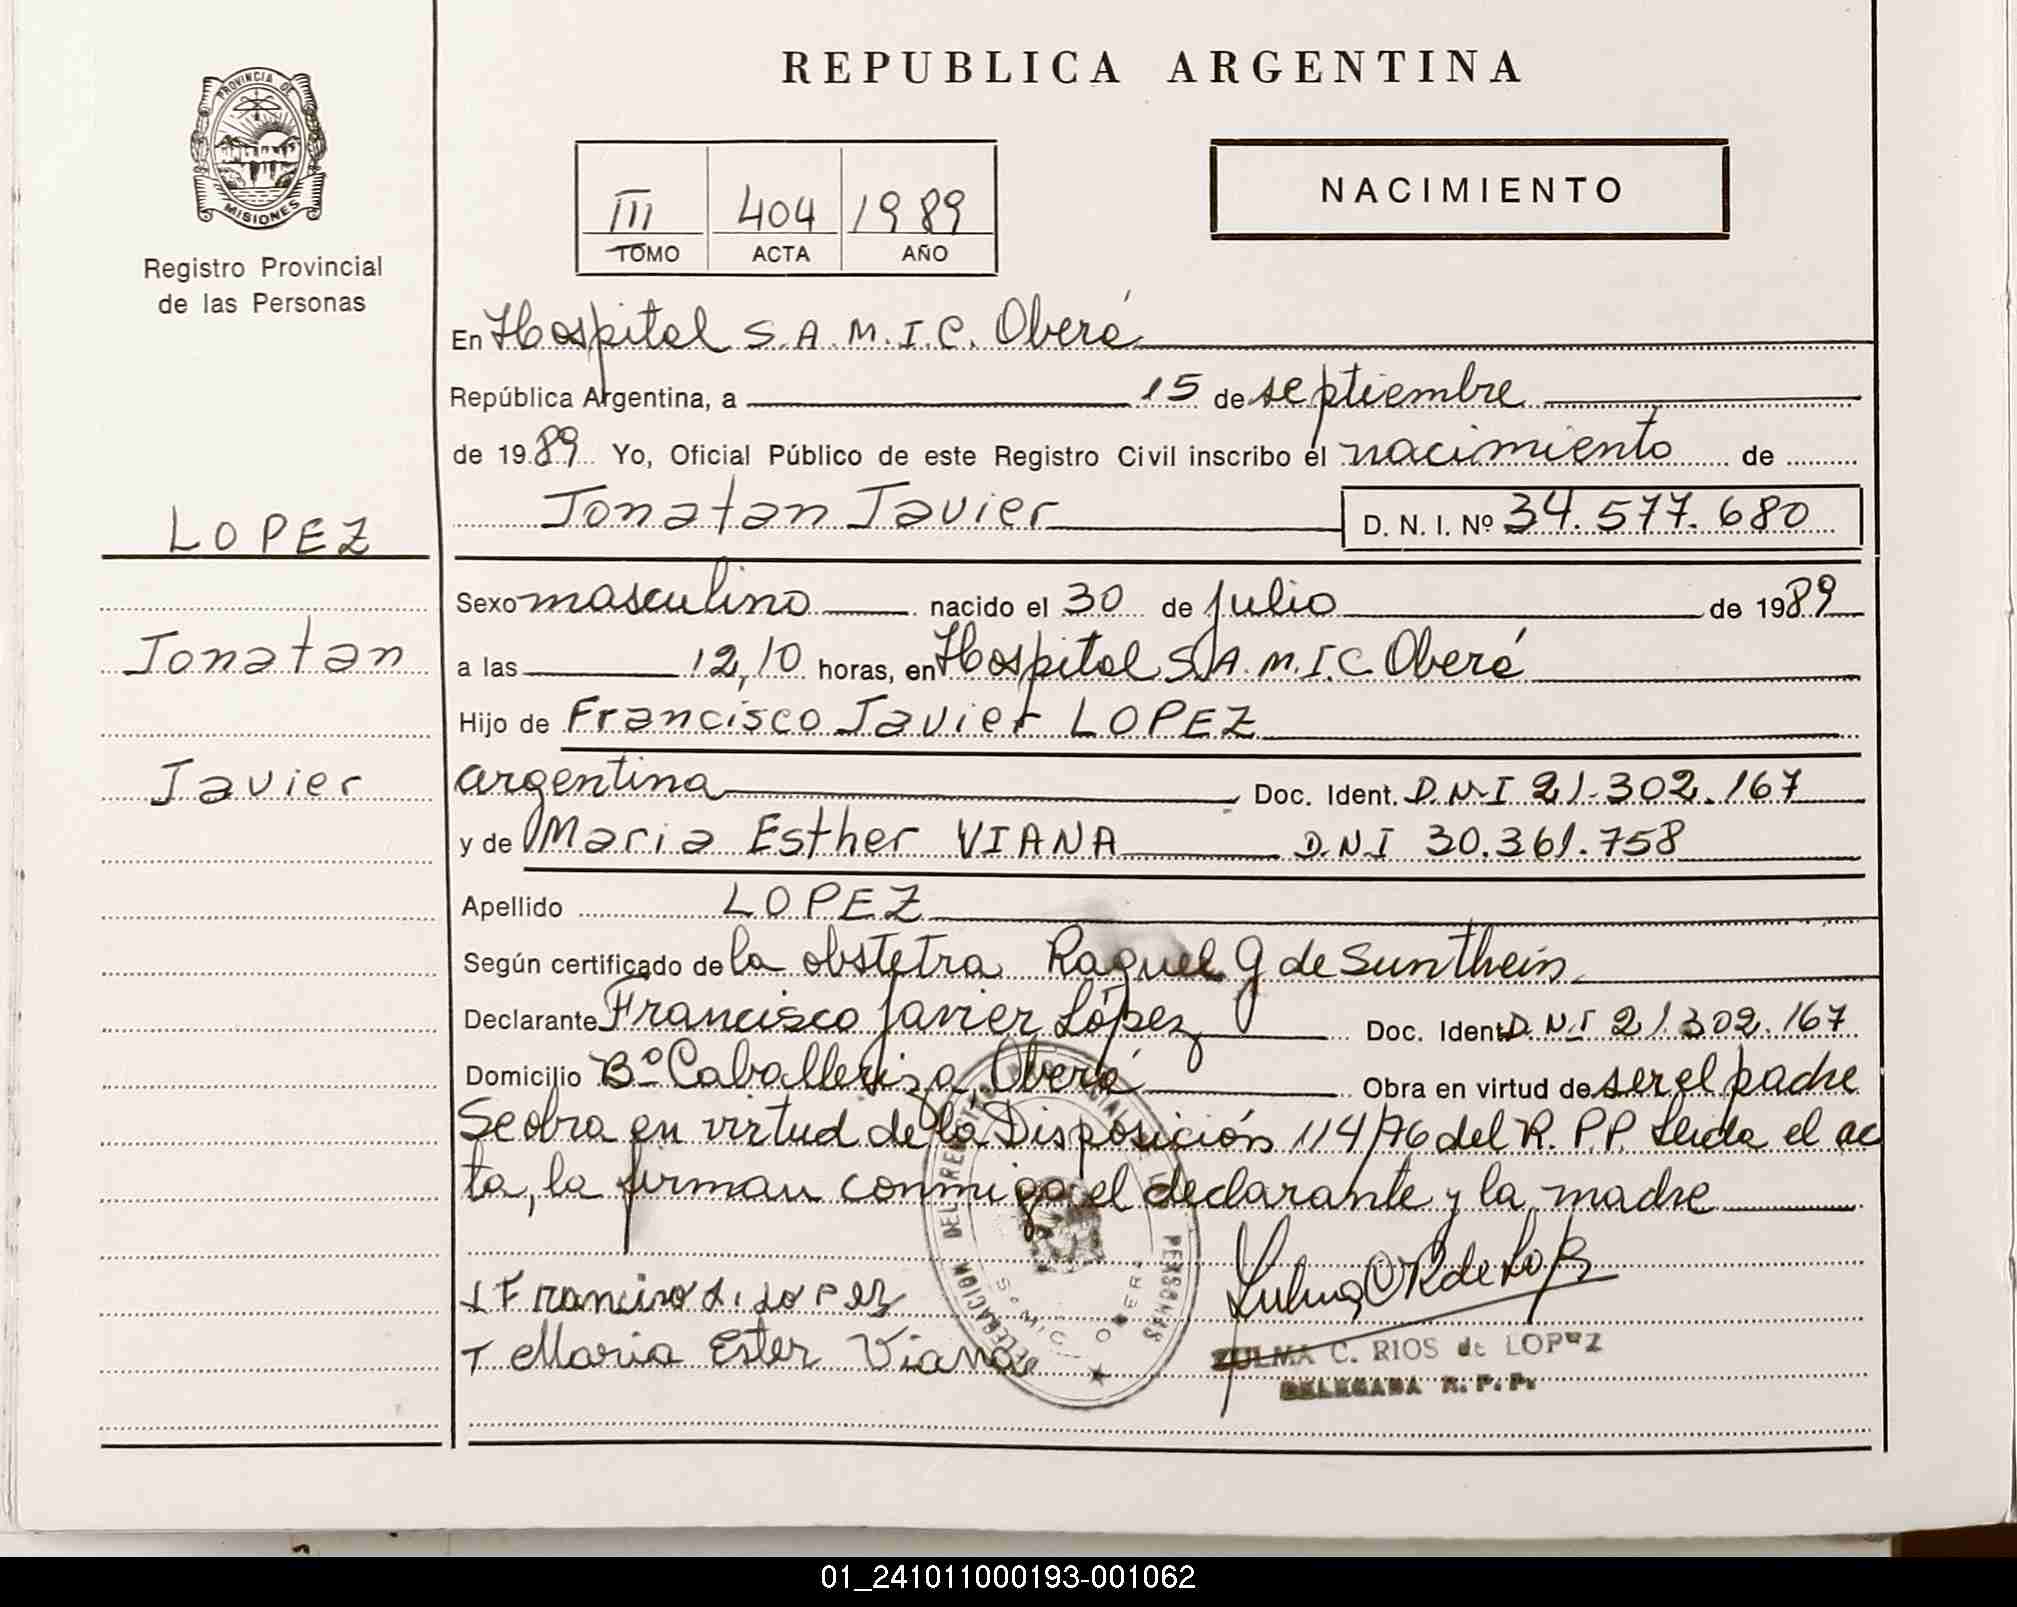 REPUBLICA ARGENTINA
PROVINCIA DE
MISIONES
Registro Provincial
de las Personas
III 404 1989
TOMO ACTA AÑO
NACIMIENTO
LOPEZ
Jonatan
Javier
En Hospital S.A.M.I.C. Oberá
República Argentina, a 15 de septiembre
de 1989 Yo, Oficial Público de este Registro Civil inscribo el nacimiento de
Jonatan Javier D. N. I. Nº 34.577.680
Sexo masculino nacido el 30 de julio de 1989
a las 12,10 horas, en Hospital S.A.M.I.C Oberá
Hijo de Francisco Javier LOPEZ
argentina Doc. Ident. D.N.I 21.302.167
y de Maria Esther VIANA D.N.I 30.361.758
Apellido LOPEZ
Según certificado de la obstetra Raquel G de Sunthein
Declarante Francisco Javier López Doc. Ident D.N.I 21.302.167
Domicilio Bº Caballeriza, Oberá Obra en virtud de ser el padre
Se obra en virtud de la Disposición 114/76 del R.P.P. Leida el ac
ta, la firman conmigo el declarante y la madre
Francisco J. Lopez
Maria Ester Viana
ZULMA C. RIOS de LOPEZ
DELEGADA R. P. P.
DELEGACION DEL REGISTRO PROVINCIAL DE LAS PERSONAS
OBERA
01_241011000193-001062